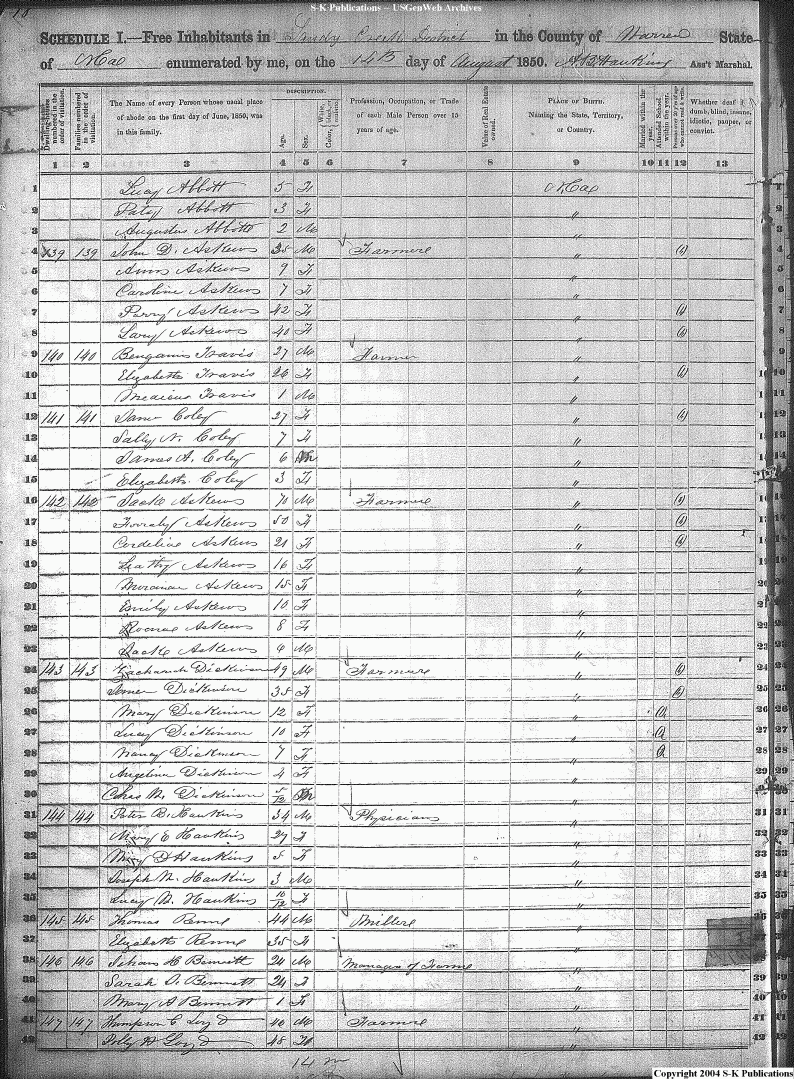 S-K Publications – USGenWeb Archives
18
SCHEDULE I.—Free Inhabitants in Sandy Creek District in the County of Warren State
of N Ca enumerated by me, on the 14th day of August 1850. Hawkins Ass't Marshal.
Dwelling-houses numbered in the order of visitation.
Families numbered in the order of visitation.
The Name of every Person whose usual place of abode on the first day of June, 1850, was in this family.
DESCRIPTION.
Age.
Sex.
Color,
Profession, Occupation, or Trade of each Male Person over 15 years of age.
Value of Real Estate owned.
PLACE OF BIRTH.
Naming the State, Territory, or Country.
Married within the year.
Attended School within the year.
Whether deaf & dumb, blind, insane, idiotic, pauper, or convict.
1 2 3 4 5 6 7 8 9 10 11 12 13
1 Lucy Abbott 5 F N Ca
2 Patsy Abbott 3 F "
3 Augustus Abbott 2 M "
4 139 139 John D. Askews 35 M Farmere " (1) 4
5 Ann Askews 9 F " 5
6 Caroline Askews 7 F " 6
7 Parry Askews 42 F " (1) 7
8 Lacy Askews 40 F " (1) 8
9 140 140 Bengamin Travis 27 M Farmer " 9
10 Elizabeth Travis 26 F " (1) 10
11 Travis 1 M " 11
12 141 141 Jane Coley 27 F " (1) 12
13 Sally N. Coley 7 F " 13
14 James A. Coley 6 M " 14
15 Elizabeth Coley 3 F "
16 142 142 Jacke Askews 70 M Farmere " (1) 16
17 Askews 50 F " (1) 17
18 Cordeline Askews 21 F " (1) 18
19 Askews 16 F " 19
20 Askews 15 F " 20
21 Emily Askews 10 F " 21
22 Askews 8 F " 22
23 Jacke Askews 6 M " 23
24 143 143 Zachariah Dickinson 49 M Farmere " (1) 24
25 Dickinson 35 F " (1) 25
26 Mary Dickinson 12 F " 1 26
27 Lucy Dickinson 10 F " 1 27
28 Nancy Dickinson 7 F " 1 28
29 Angelina Dickinson 4 F " 29
30 Dickinson M "
31 144 144 Peter B. Hawkins 34 M Physicians " 31
32 Mary E Hawkins 27 F " 32
33 Mary Hawkins 5 F " 33
34 Joseph N. Hawkins 3 M " 34
35 Lucy N. Hawkins 10/12 F " 35
36 145 145 Thomas Renne 44 M Millere " 36
37 Elizabeth Renne 35 F "
38 146 146 H Bennett 24 M Manager of Farme "
39 Sarah D. Bennett 24 F " 39
40 Mary A Bennett 1 F " 40
41 147 147 Thompson C Loyd 40 M Farmere " 41
42 Polly Loyd 48 F " 42
14 m
Copyright 2004 S-K Publications